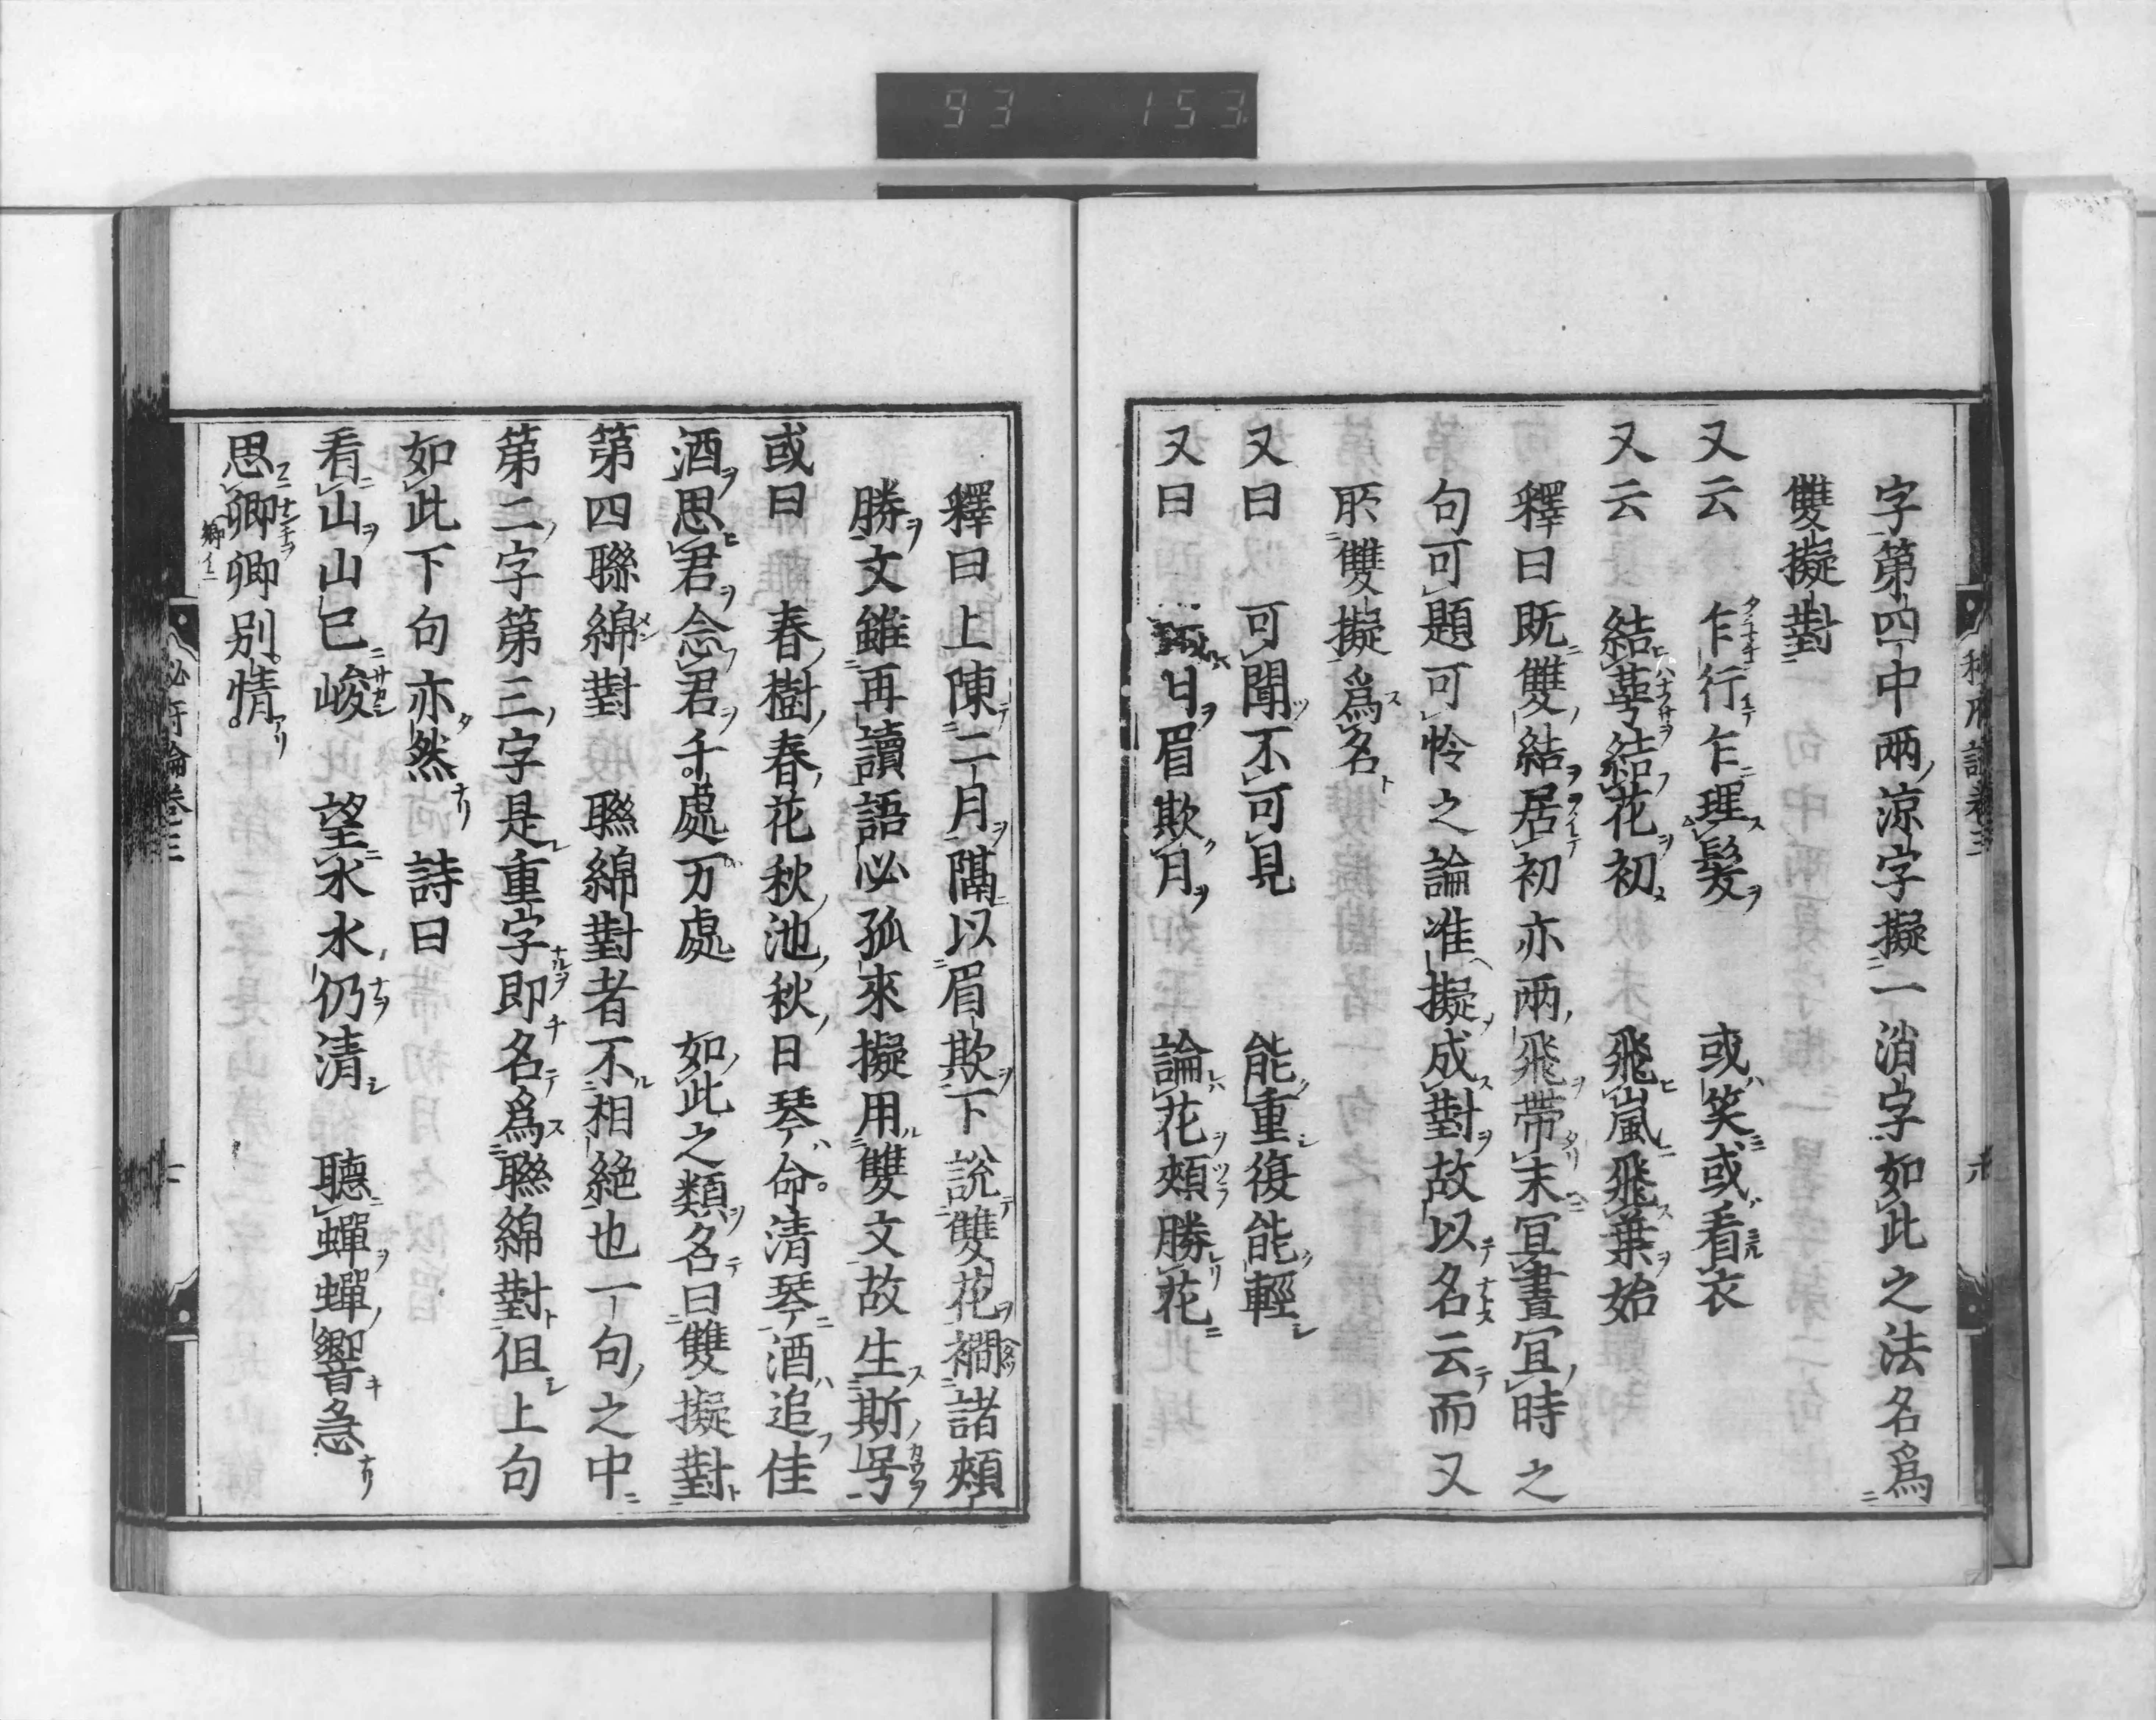 93 153
字第四中兩涼字擬一消字如此之法名爲
雙擬對
又云 乍行乍理髮 或笑或看衣
又云 結萼結花初 飛嵐飛葉始
釋曰既雙結居初亦兩飛帶末宜晝宜時之
句可題可怜之論准擬成對故以名云而又
所雙擬爲名
又曰 可聞不可見 能重復能輕
又曰 議月眉欺月 論花頰勝花
釋曰上陳二月隔以眉欺下說雙花襉諸頰
勝文雖再讀語必孤來擬用雙文故生斯号
或曰 春樹春花秋池秋日琴命清琴酒追佳
酒思君念君千處万處 如此之類名曰雙擬對
第四聯綿對 聯綿對者不相絶也一句之中
第二字第三字是重字即名爲聯綿對但上句
如此下句亦然 詩曰
看山山已峻 望水水仍清 聽蟬蟬響急
思卿卿別情
秘府論卷三